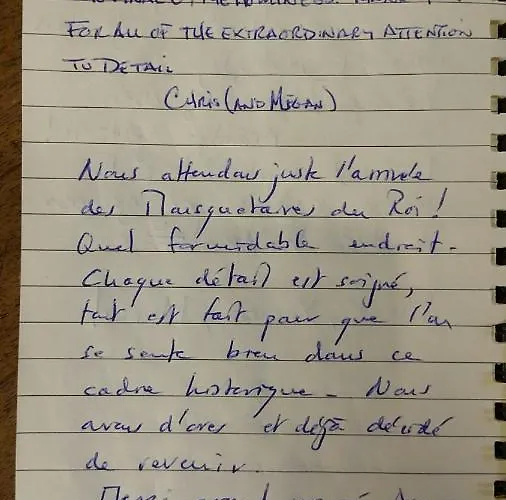 FOR ALL OF THE EXTRAORDINARY ATTENTION
TO DETAIL
CHRIS (AND MEGAN)
Nous attendons juste l'arrivée
des Mousquetaires du Roi !
Quel formidable endroit.
Chaque détail est soigné,
tout est fait pour que l'on
se sente bien dans ce
cadre historique. Nous
avons d'ores et déjà décidé
de revenir.